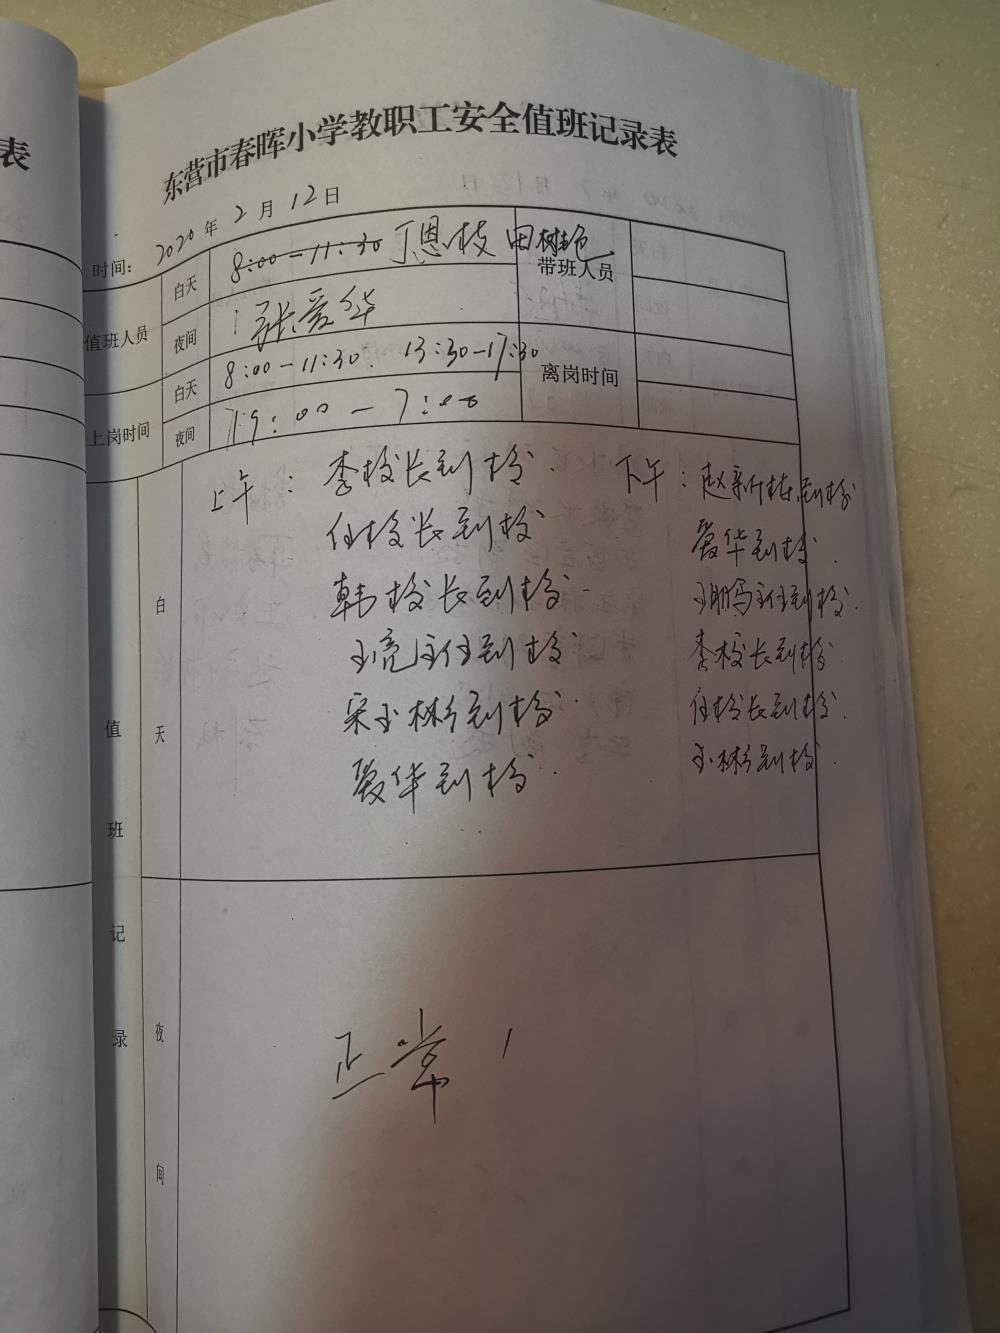 表
东营市春晖小学教职工安全值班记录表
时间： 2020 年 2 月 12 日
值班人员 白天 8:00-11:30 丁恩枝 田树 带班人员
夜间 张爱华
上岗时间 白天 8:00-11:30. 13:30-17:30 离岗时间
夜间 19:00-7:00
值班记录
白天
上午： 李校长到校. 下午：赵新 到校
任校长到校 聂华到校.
韩校长到校. 王鹏主任到校.
王亮主任到校 李校长到校.
宋玉彬到校 任校长到校.
聂华到校. 玉彬到校.
夜间
正常